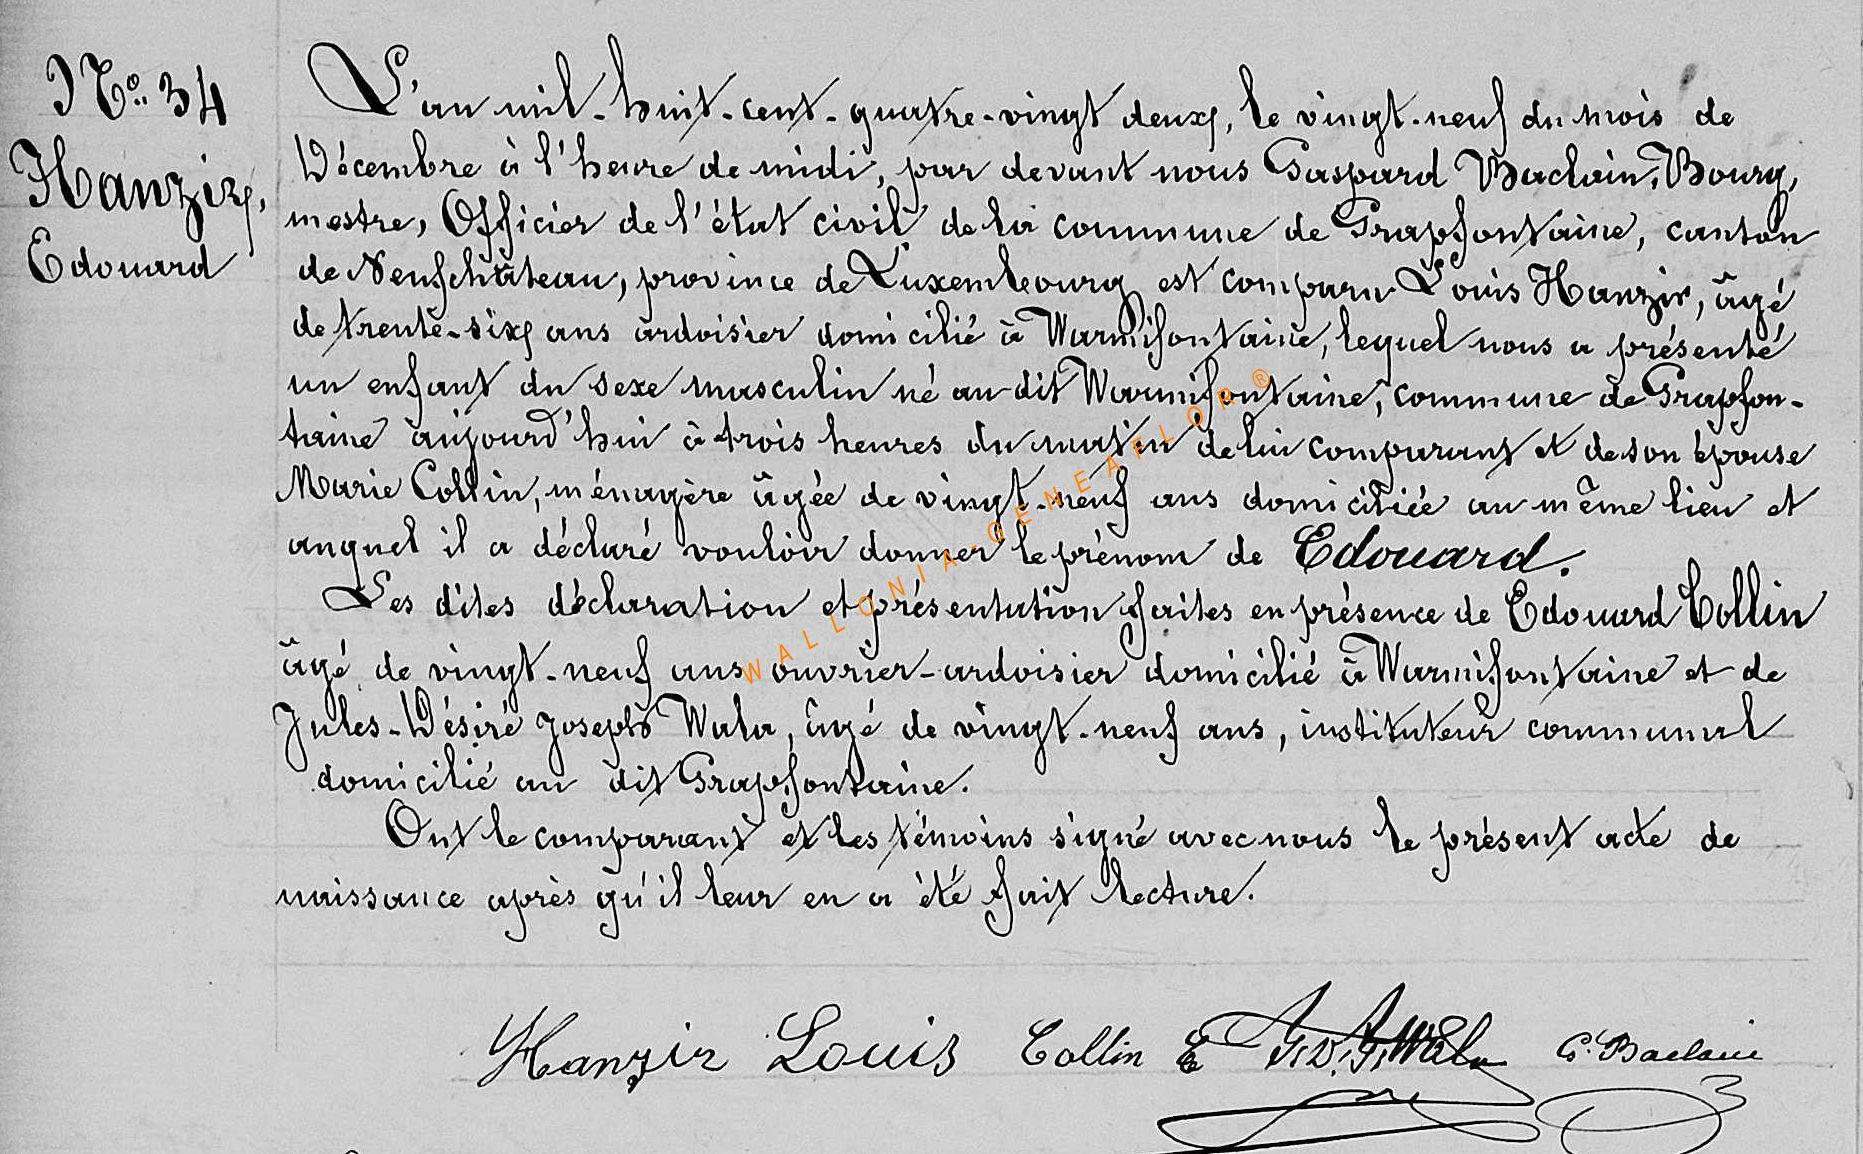 N°. 34
Hanzir,
Edouard
L'an mil-huit-cent-quatre-vingt deux, le vingt-neuf du mois de
Décembre à l'heure de midi, par devant nous Gaspard Baclain, Bourg,
mestre, Officier de l'état civil de la commune de Grapfontaine, canton
de Neufchâteau, province de Luxembourg est comparu Louis Hanzir, âgé
de trente-six ans ardoisier domicilié à Warmifontaine, lequel nous a présenté
un enfant du sexe masculin né au dit Warmifontaine, commune de Grapfon-
taine aujourd'hui à trois heures du matin de lui comparant et de son épouse
Marie Collin, ménagère âgée de vingt-neuf ans domiciliée au même lieu et
auquel il a déclaré vouloir donner le prénom de Edouard.
Les dites déclaration et présentation faites en présence de Edouard Collin
âgé de vingt-neuf ans ouvrier-ardoisier domicilié à Warmifontaine et de
Jules-Désiré Joseph Wala, âgé de vingt-neuf ans, instituteur communal
domicilié au dit Grapfontaine.
Ont le comparant et les témoins signé avec nous le présent acte de
naissance après qu'il leur en a été fait lecture.
Hanzir Louis Collin E J.D.J. Wala G. Baclain
WALLONIA-GENEAFLOR®